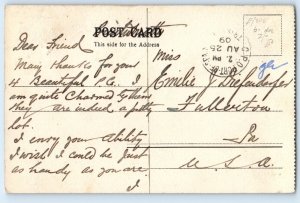 POST CARD
This side for the Address
Dear Friend
Many thanks for your
4 Beautiful P.C. I
am quite Charmed
they
are indeed a pretty
lot.
I envy your ability
I wish I could be just
as handy as you are
I
Miss
Emilie J
ger
Fullerton
Pa
U.S.A.
AU 28
09